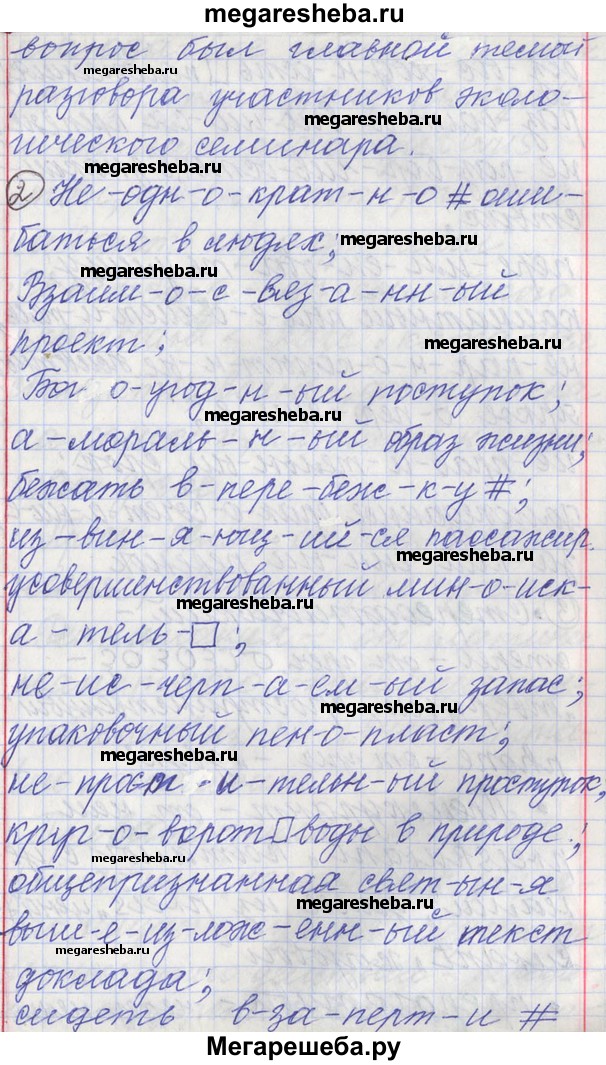 megaresheba.ru
вопрос был главной темой
megaresheba.ru
разговора участников эколо-
megaresheba.ru
гического семинара.
megaresheba.ru
2 Не-одн-о-крат-н-о # оши-
megaresheba.ru
баться в людях;
megaresheba.ru
megaresheba.ru
Взаим-о-с-вяз-а-нн-ый
проект;
megaresheba.ru
Бог о-угод-н-ый поступок;
megaresheba.ru
а-мораль-н-ый образ жизни;
megaresheba.ru
бежать в-пере-беж-к-у#;
из-вин-я-ющ-ий-ся пассажир.
megaresheba.ru
усовершенствованный мин-о-иск-
а-тель-□;
megaresheba.ru
не-ис-черп-а-ем-ый запас;
megaresheba.ru
упаковочный пен-о-пласт;
megaresheba.ru
не-прост-и-тельн-ый проступок,
megaresheba.ru
круг-о-ворот□воды в природе;
megaresheba.ru
общепризнанная свят-ын-я
megaresheba.ru
выш-е-из-лож-енн-ый текст
megaresheba.ru
доклада;
сидеть в-за-перт-и #
Мегарешеба.ру